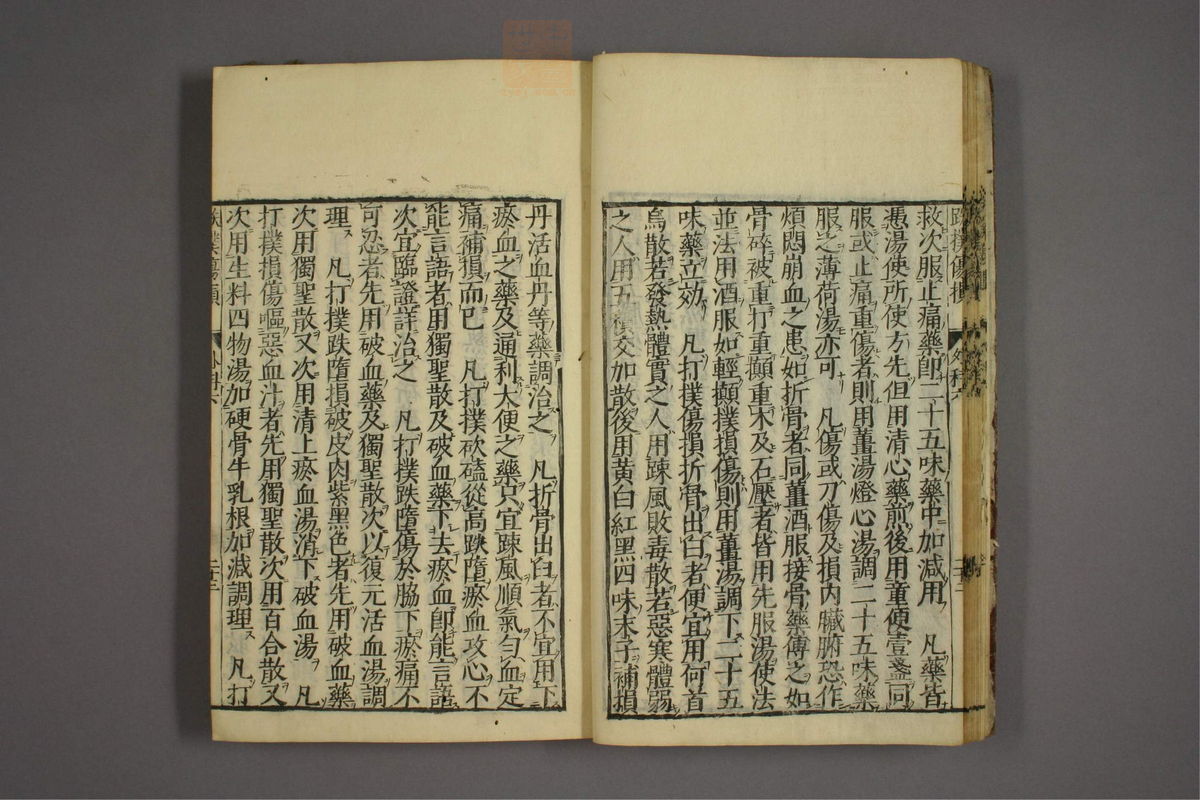 救次服止痛藥即二十五味藥中加減用　凡藥皆
憑湯使所使方先但用清心藥煎後用童便壹盞同
服或止痛重傷者則用薑湯燈心湯調二十五味藥
服之薄荷湯亦可　凡傷或刀傷及損內臟腑恐作
煩悶崩血之患如折骨者同薑酒服接骨藥傅之如
骨碎被重打重顚重木及石壓者皆用先服湯使法
並法用酒服如輕顚撲損傷則用薑湯調下二十五
味藥立効　凡打撲傷損折骨出臼者便宜用何首
烏散若發熱體實之人用踈風敗毒散若惡寒體弱
之人用五積交加散後用黃白紅黑四味末子補損
丹活血丹等藥調治之　凡折骨出臼者不宜用下
瘀血之藥及通利大便之藥只宜踈風順氣勻血定
痛補損而已　凡打撲砍磕從高跌墮瘀血攻心不
能言語者用獨聖散及破血藥下去瘀血即能言語
次宜臨證詳治之　凡打撲跌墮傷於脇下瘀痛不
可忍者先用破血藥及獨聖散次以復元活血湯調
理　凡打撲跌墮損被皮肉紫黑色者先用破血藥
次用獨聖散又次用清上瘀血湯消下破血湯　凡
打撲損傷嘔惡血汁者先用獨聖散次用百合散又
次用生料四物湯加硬骨牛乳根加減調理　凡打